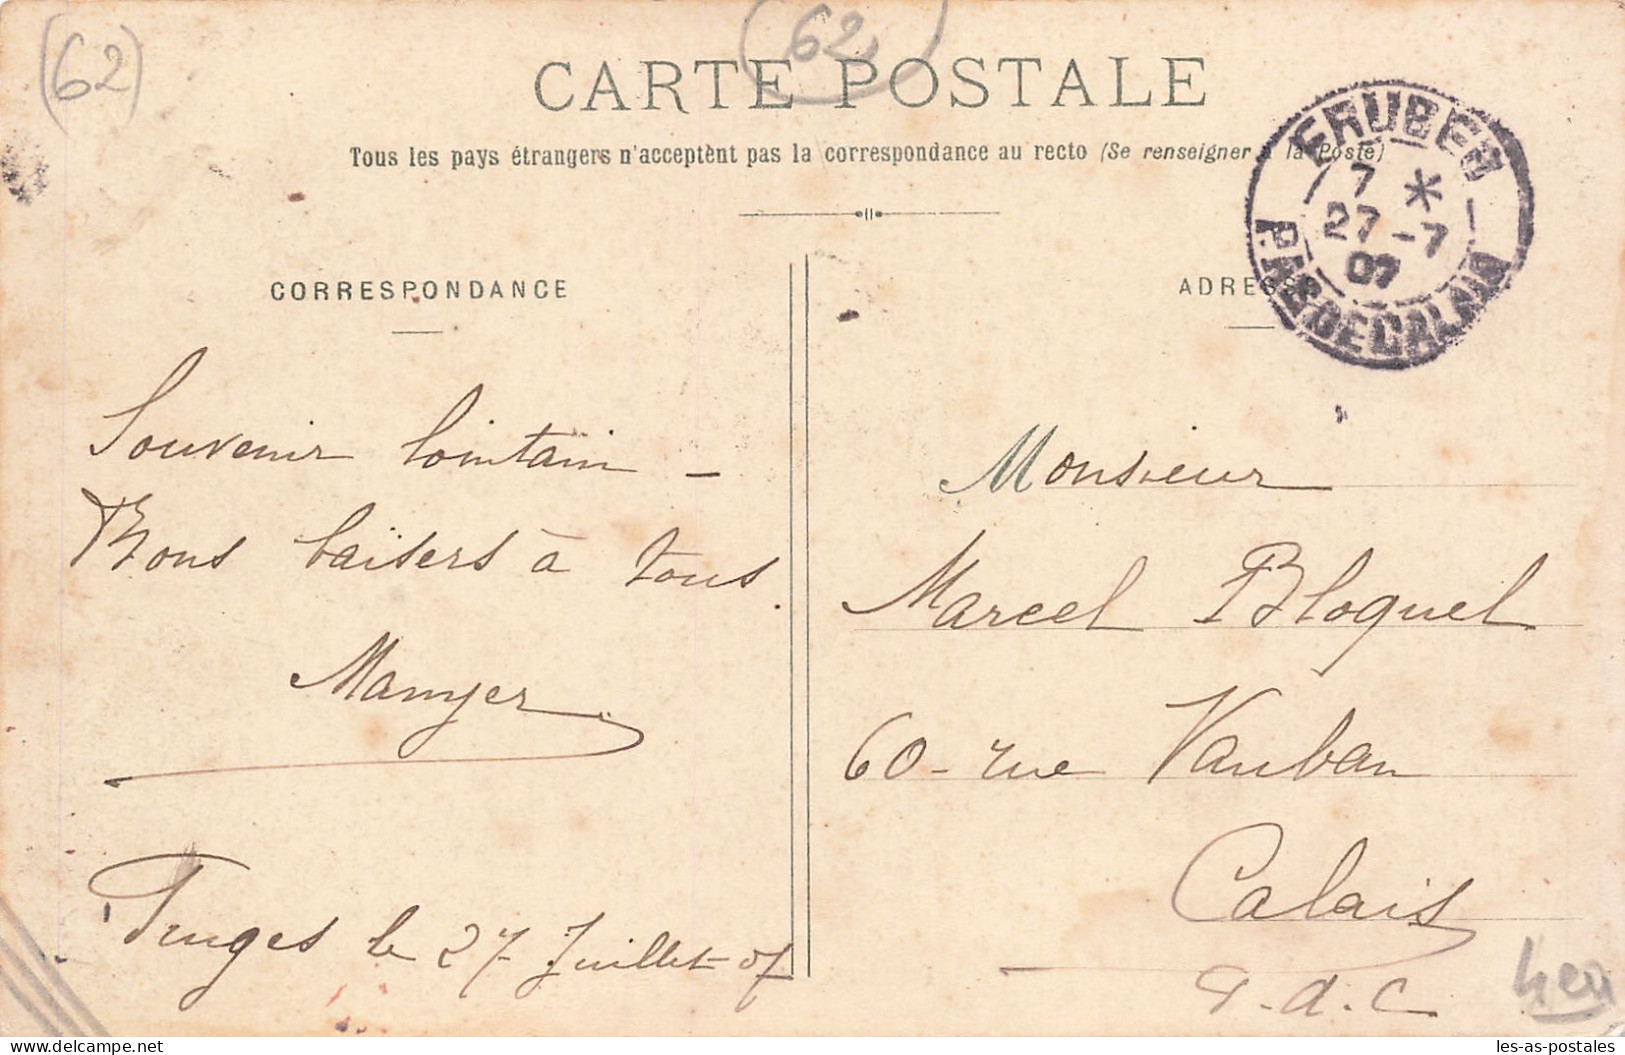 (62)
(62)
CARTE POSTALE
Tous les pays étrangers n'acceptent pas la correspondance au recto (Se renseigner à la Poste)
FRUGES
7 *
27 -7
07
PAS DE CALAIS
CORRESPONDANCE
Souvenir lointain –
Bons baisers à tous.
Fruges le 27 Juillet 07
ADRESSE
Monsieur
Marcel Bloquel
60 - rue Vauban
Calais
P. d. C.
les-as-postales
delcampe.net